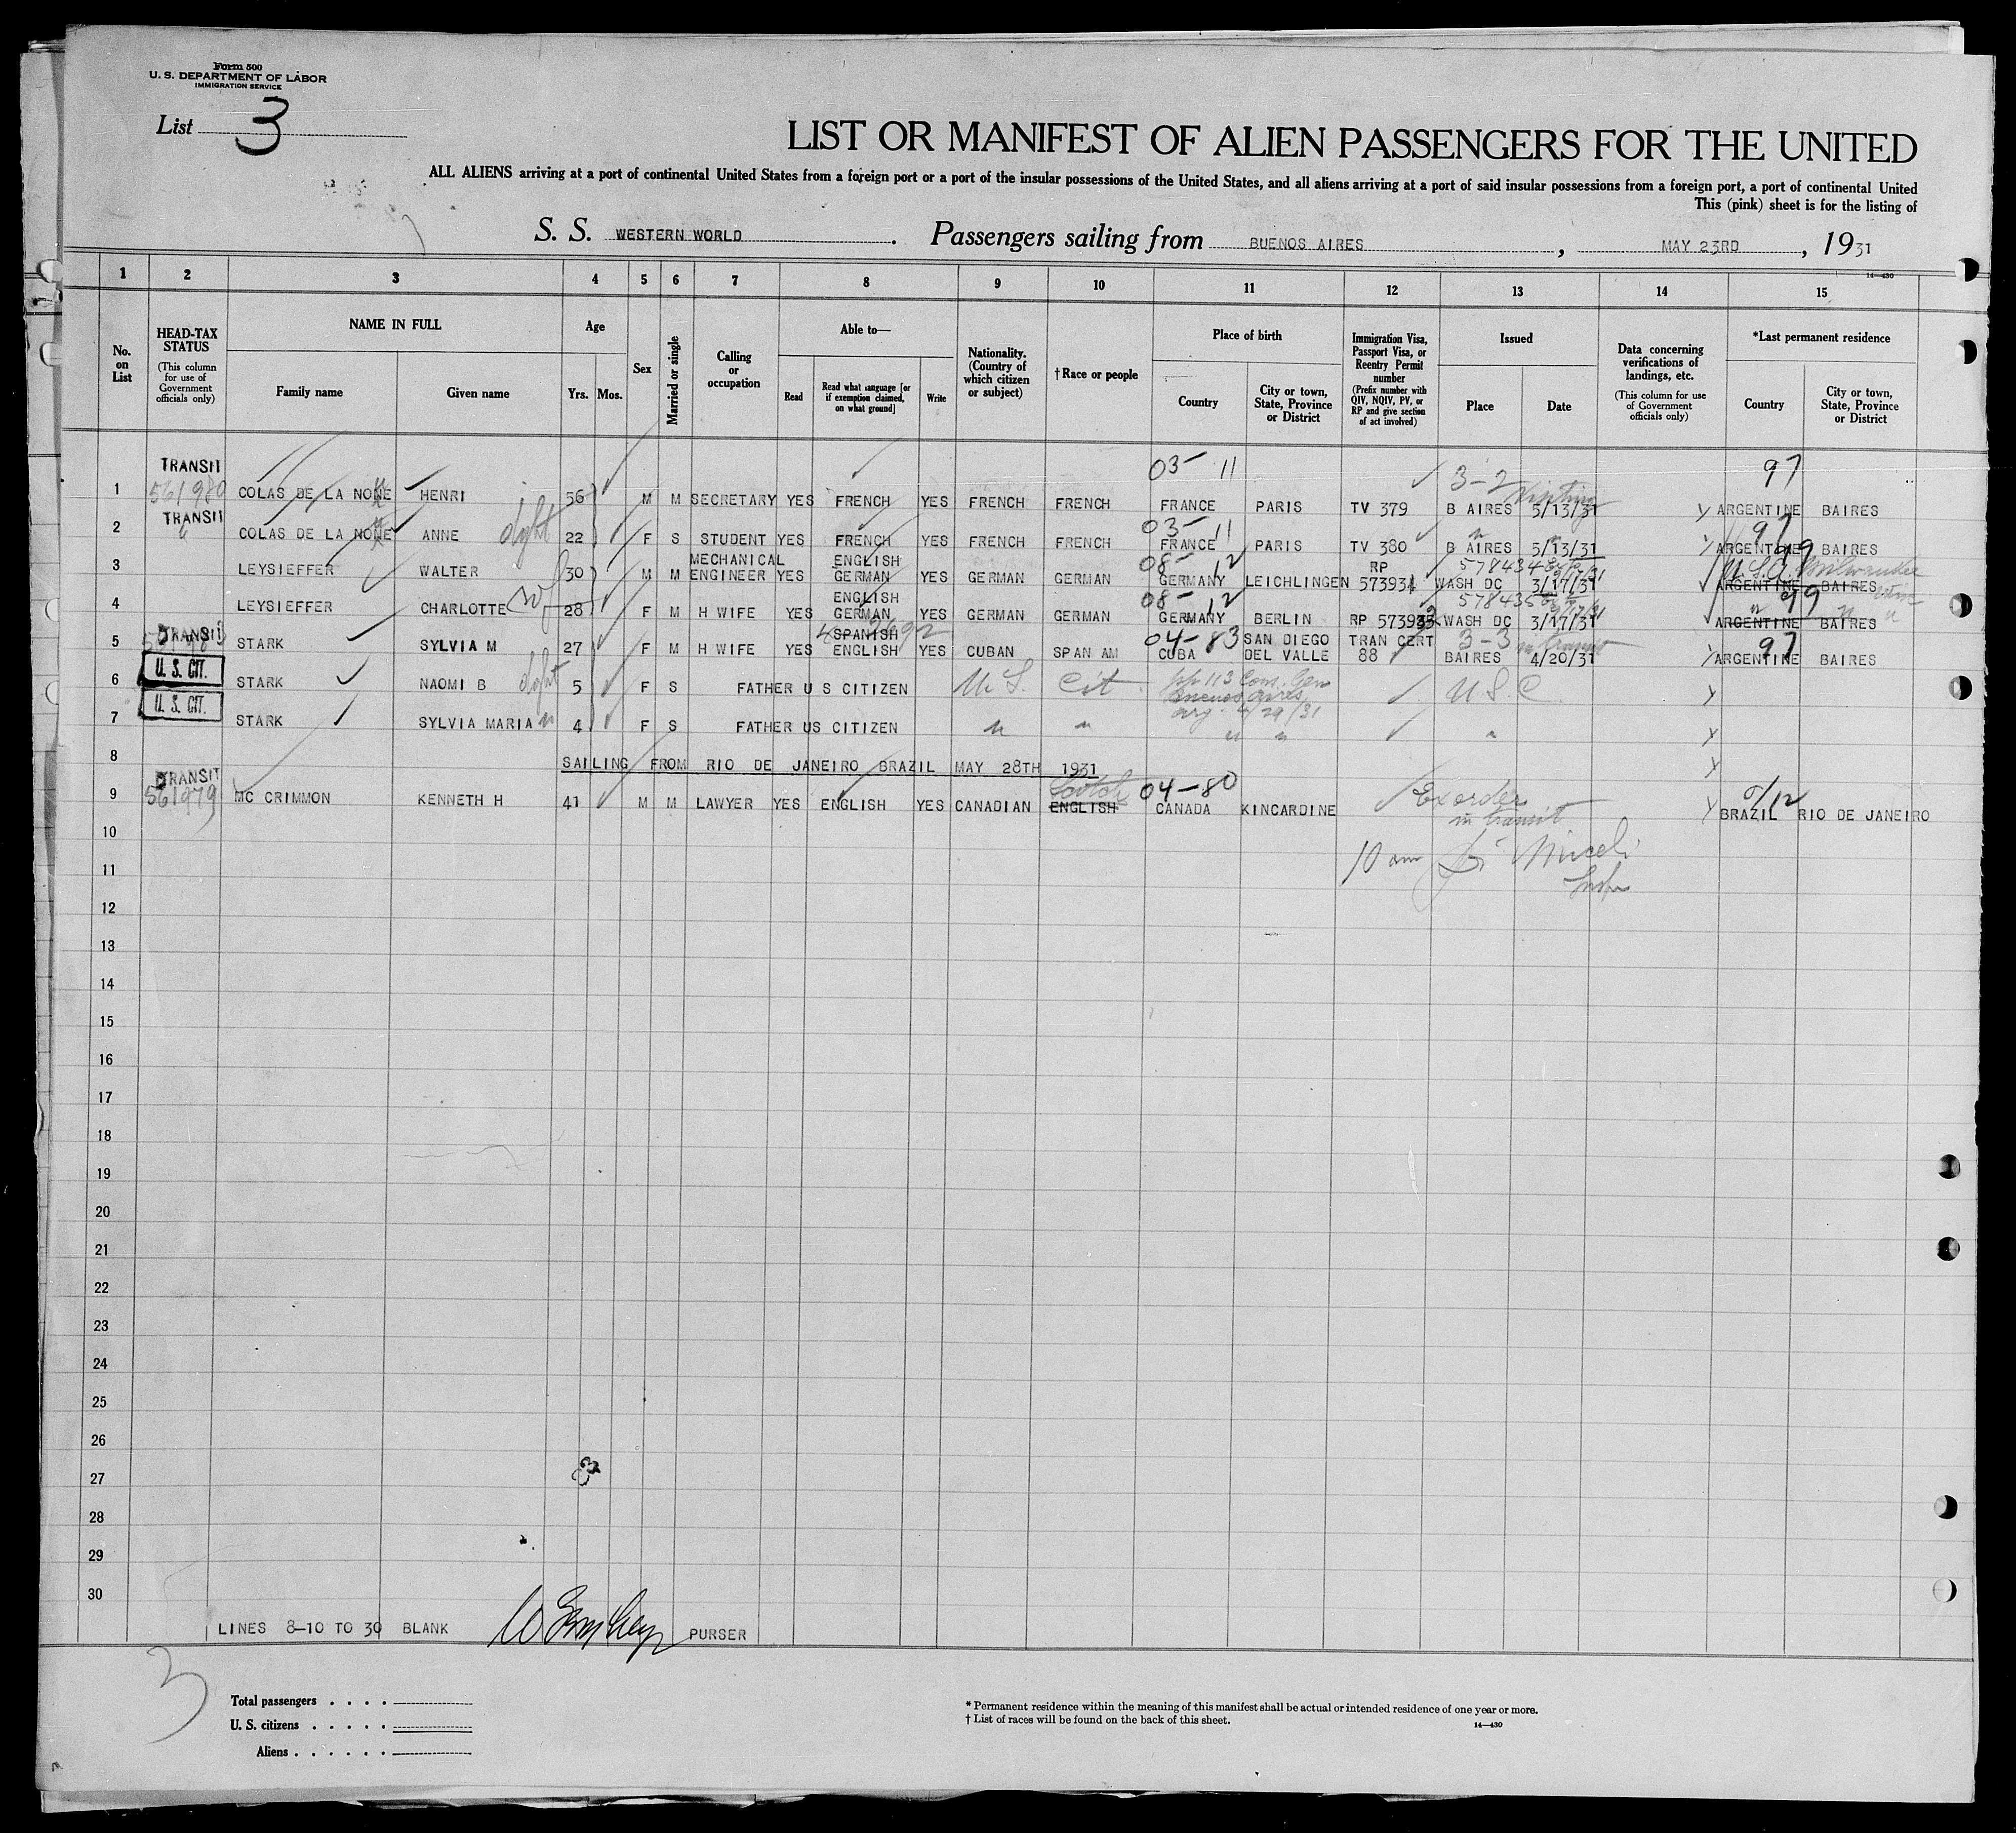 Form 500
U. S. DEPARTMENT OF LABOR
IMMIGRATION SERVICE
List 3
LIST OR MANIFEST OF ALIEN PASSENGERS FOR THE UNITED
ALL ALIENS arriving at a port of continental United States from a foreign port or a port of the insular possessions of the United States, and all aliens arriving at a port of said insular possessions from a foreign port, a port of continental United
This (pink) sheet is for the listing of
S. S. WESTERN WORLD . Passengers sailing from BUENOS AIRES , MAY 23RD , 1931
14—430
1 2 3 4 5 6 7 8 9 10 11 12 13 14 15
No. on List
HEAD-TAX STATUS
(This column for use of Government officials only)
NAME IN FULL
Family name
Given name
Age
Yrs. Mos.
Sex
Married or single
Calling or occupation
Able to—
Read
Read what language [or if exemption claimed, on what ground]
Write
Nationality. (Country of which citizen or subject)
†Race or people
Place of birth
Country
City or town, State, Province or District
Immigration Visa, Passport Visa, or Reentry Permit number
(Prefix number with QIV, NQIV, PV, or RP and give section of act involved)
Issued
Place
Date
Data concerning verifications of landings, etc.
(This column for use of Government officials only)
*Last permanent residence
Country
City or town, State, Province or District
TRANSIT 03- 11 3-2 Visiting 97
1 561980 COLAS DE LA NONE HENRI 56 M M SECRETARY YES FRENCH YES FRENCH FRENCH FRANCE PARIS TV 379 B AIRES 5/13/31 ARGENTINE BAIRES
TRANSIT 03- 11 97
2 COLAS DE LA NONE ANNE dght 22 F S STUDENT YES FRENCH YES FRENCH FRENCH FRANCE PARIS TV 380 B AIRES 5/13/31 ARGENTINE BAIRES
MECHANICAL ENGLISH 08- 12 RP 578434 99 U.S.A. Milwaukee
3 LEYSIEFFER WALTER 30 M M ENGINEER YES GERMAN YES GERMAN GERMAN GERMANY LEICHLINGEN 573934 WASH DC 3/17/31 ARGENTINE BAIRES
ENGLISH 08- 12 578435 99
4 LEYSIEFFER CHARLOTTE wf 28 F M H WIFE YES GERMAN YES GERMAN GERMAN GERMANY BERLIN RP 573933 WASH DC 3/17/31 ARGENTINE BAIRES
TRANSIT SPANISH 04-83 SAN DIEGO TRAN CERT 3-3 in transit 97
5 STARK SYLVIA M 27 F M H WIFE YES ENGLISH YES CUBAN SPAN AM CUBA DEL VALLE 88 BAIRES 4/20/31 ARGENTINE BAIRES
U. S. CIT.
6 STARK NAOMI B dght 5 F S FATHER U S CITIZEN U. S. Cit. pp 113 Con. Gen Buenos Aires Arg. 4/29/31 U S C
U. S. CIT.
7 STARK SYLVIA MARIA " 4 F S FATHER US CITIZEN " " " " "
8 SAILING FROM RIO DE JANEIRO BRAZIL MAY 28TH 1931
TRANSIT Scotch 04-80
9 561979 MC CRIMMON KENNETH H 41 M M LAWYER YES ENGLISH YES CANADIAN ENGLISH CANADA KINCARDINE Ex order in transit BRAZIL RIO DE JANEIRO
10
10 am
11
12
13
14
15
16
17
18
19
20
21
22
23
24
25
26
27
28
29
30
LINES 8-10 TO 30 BLANK PURSER
3
Total passengers . . . .
U. S. citizens . . . . .
Aliens . . . . . .
* Permanent residence within the meaning of this manifest shall be actual or intended residence of one year or more.
† List of races will be found on the back of this sheet.
14—430